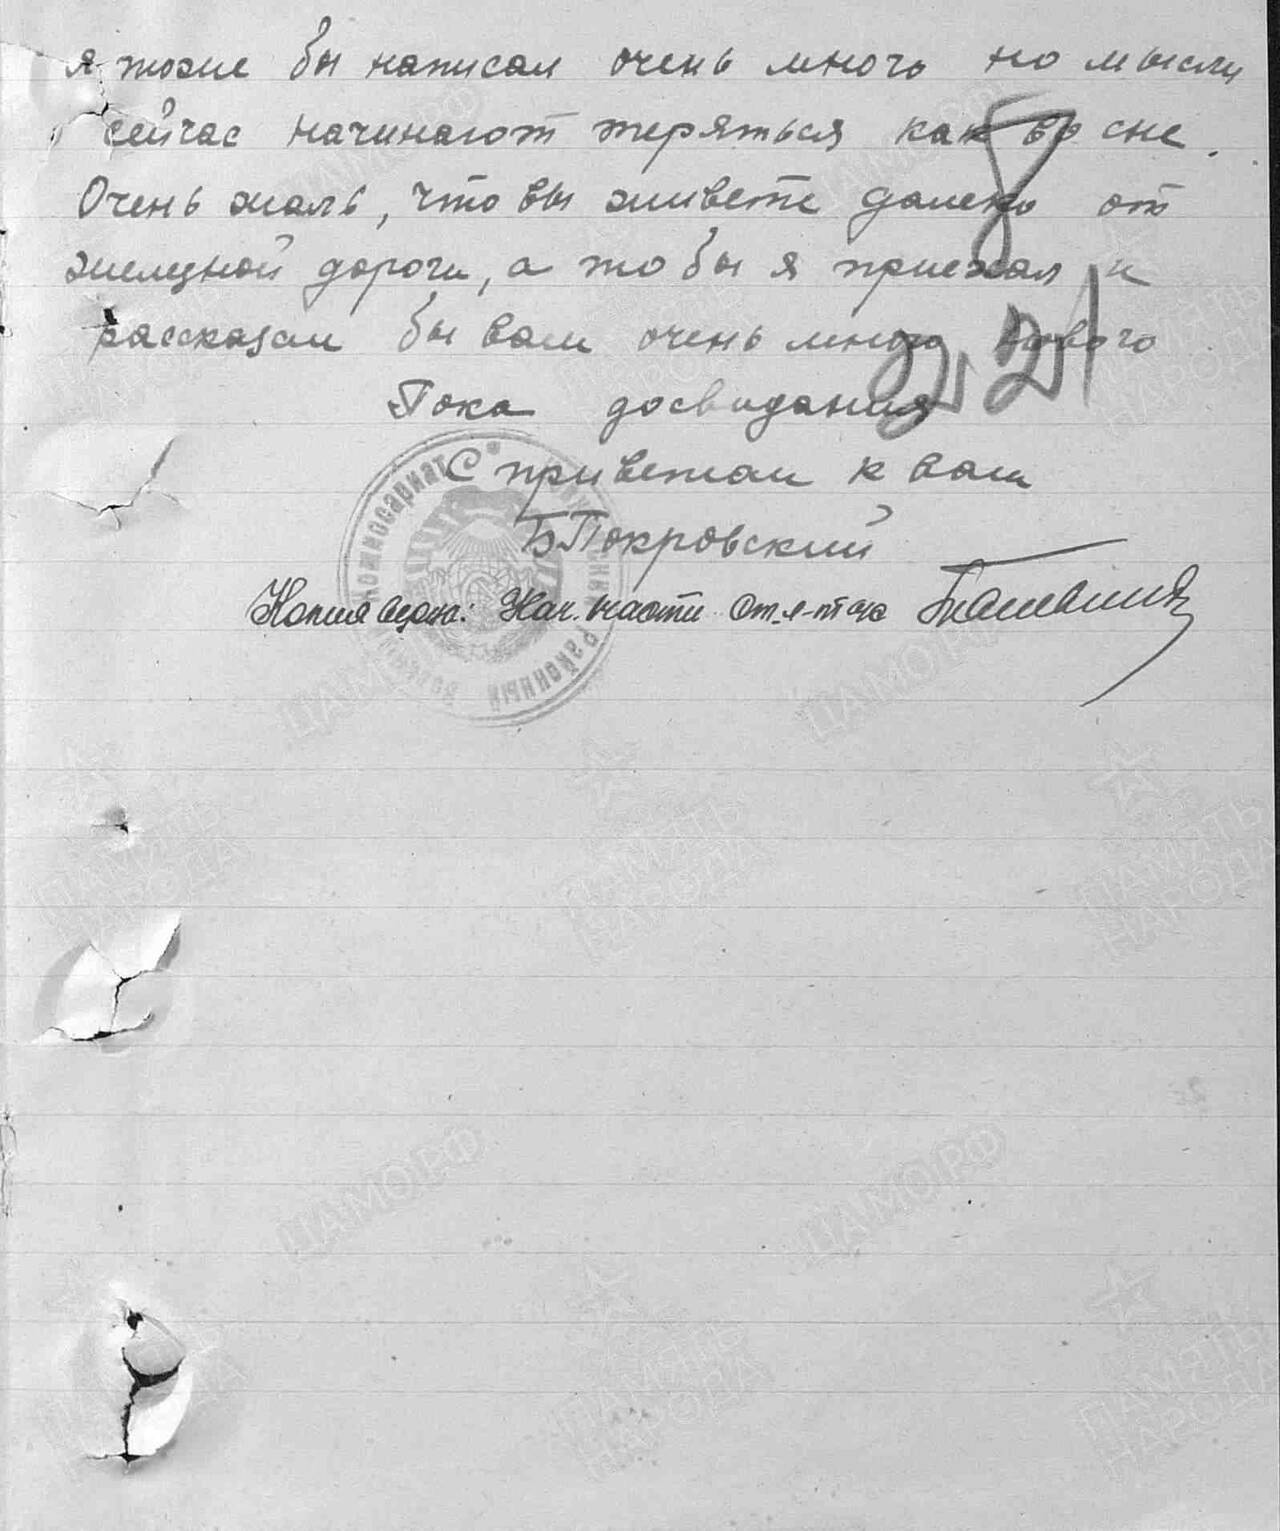 я тоже бы написал очень много но мысли
сейчас начинают теряться как во сне.
Очень жаль, что вы живете далеко от
железной дороги, а то бы я приехал и
рассказал бы вам очень много нового
Пока досвидания
С приветом к вам
Б Покровский
Копия верна: Нач. части
районный
комиссариат
ПАМЯТЬ НАРОДА
ЦАМО.РФ